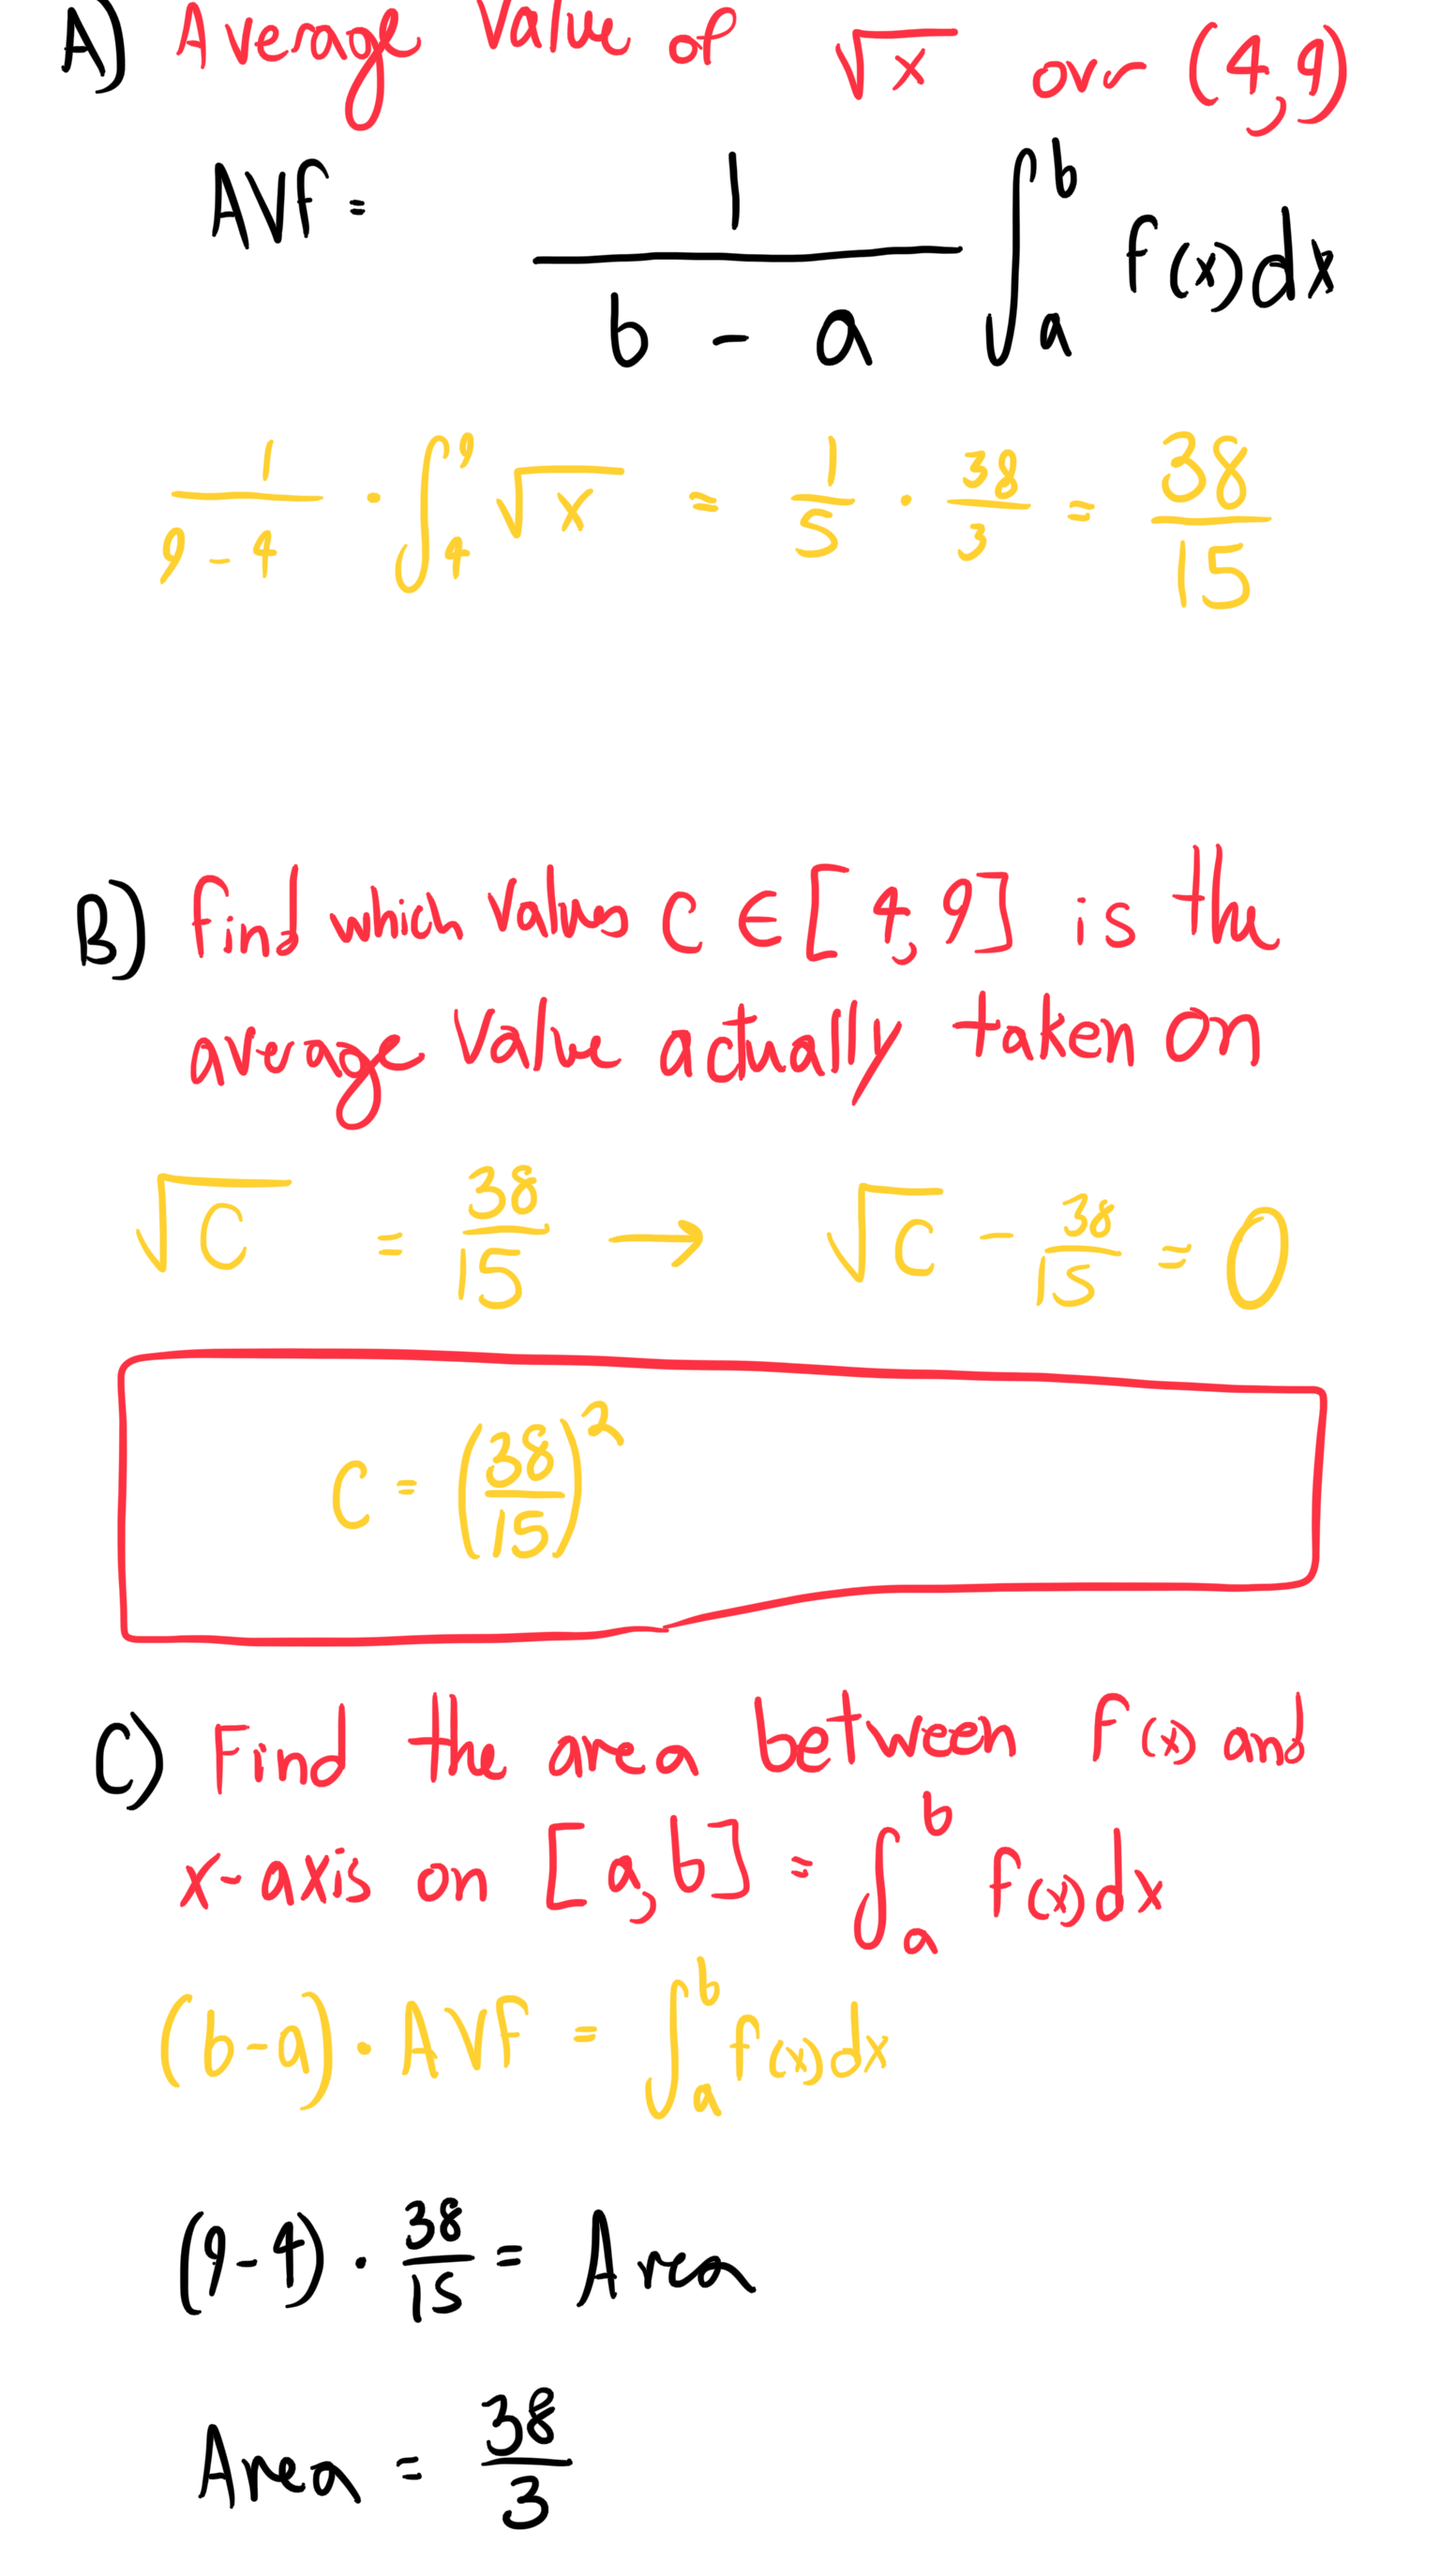 A) Average Value of √x over (4,9)
AVF = 1/(b - a) ∫_a^b f(x)dx
1/(9-4) · ∫_4^9 √x = 1/5 · 38/3 = 38/15
B) find which values C ∈ [4,9] is the
average value actually taken on
√C = 38/15 → √C - 38/15 = 0
C = (38/15)^2
C) Find the area between f(x) and
x-axis on [a,b] = ∫_a^b f(x)dx
(b-a) · AVF = ∫_a^b f(x)dx
(9-4) · 38/15 = Area
Area = 38/3